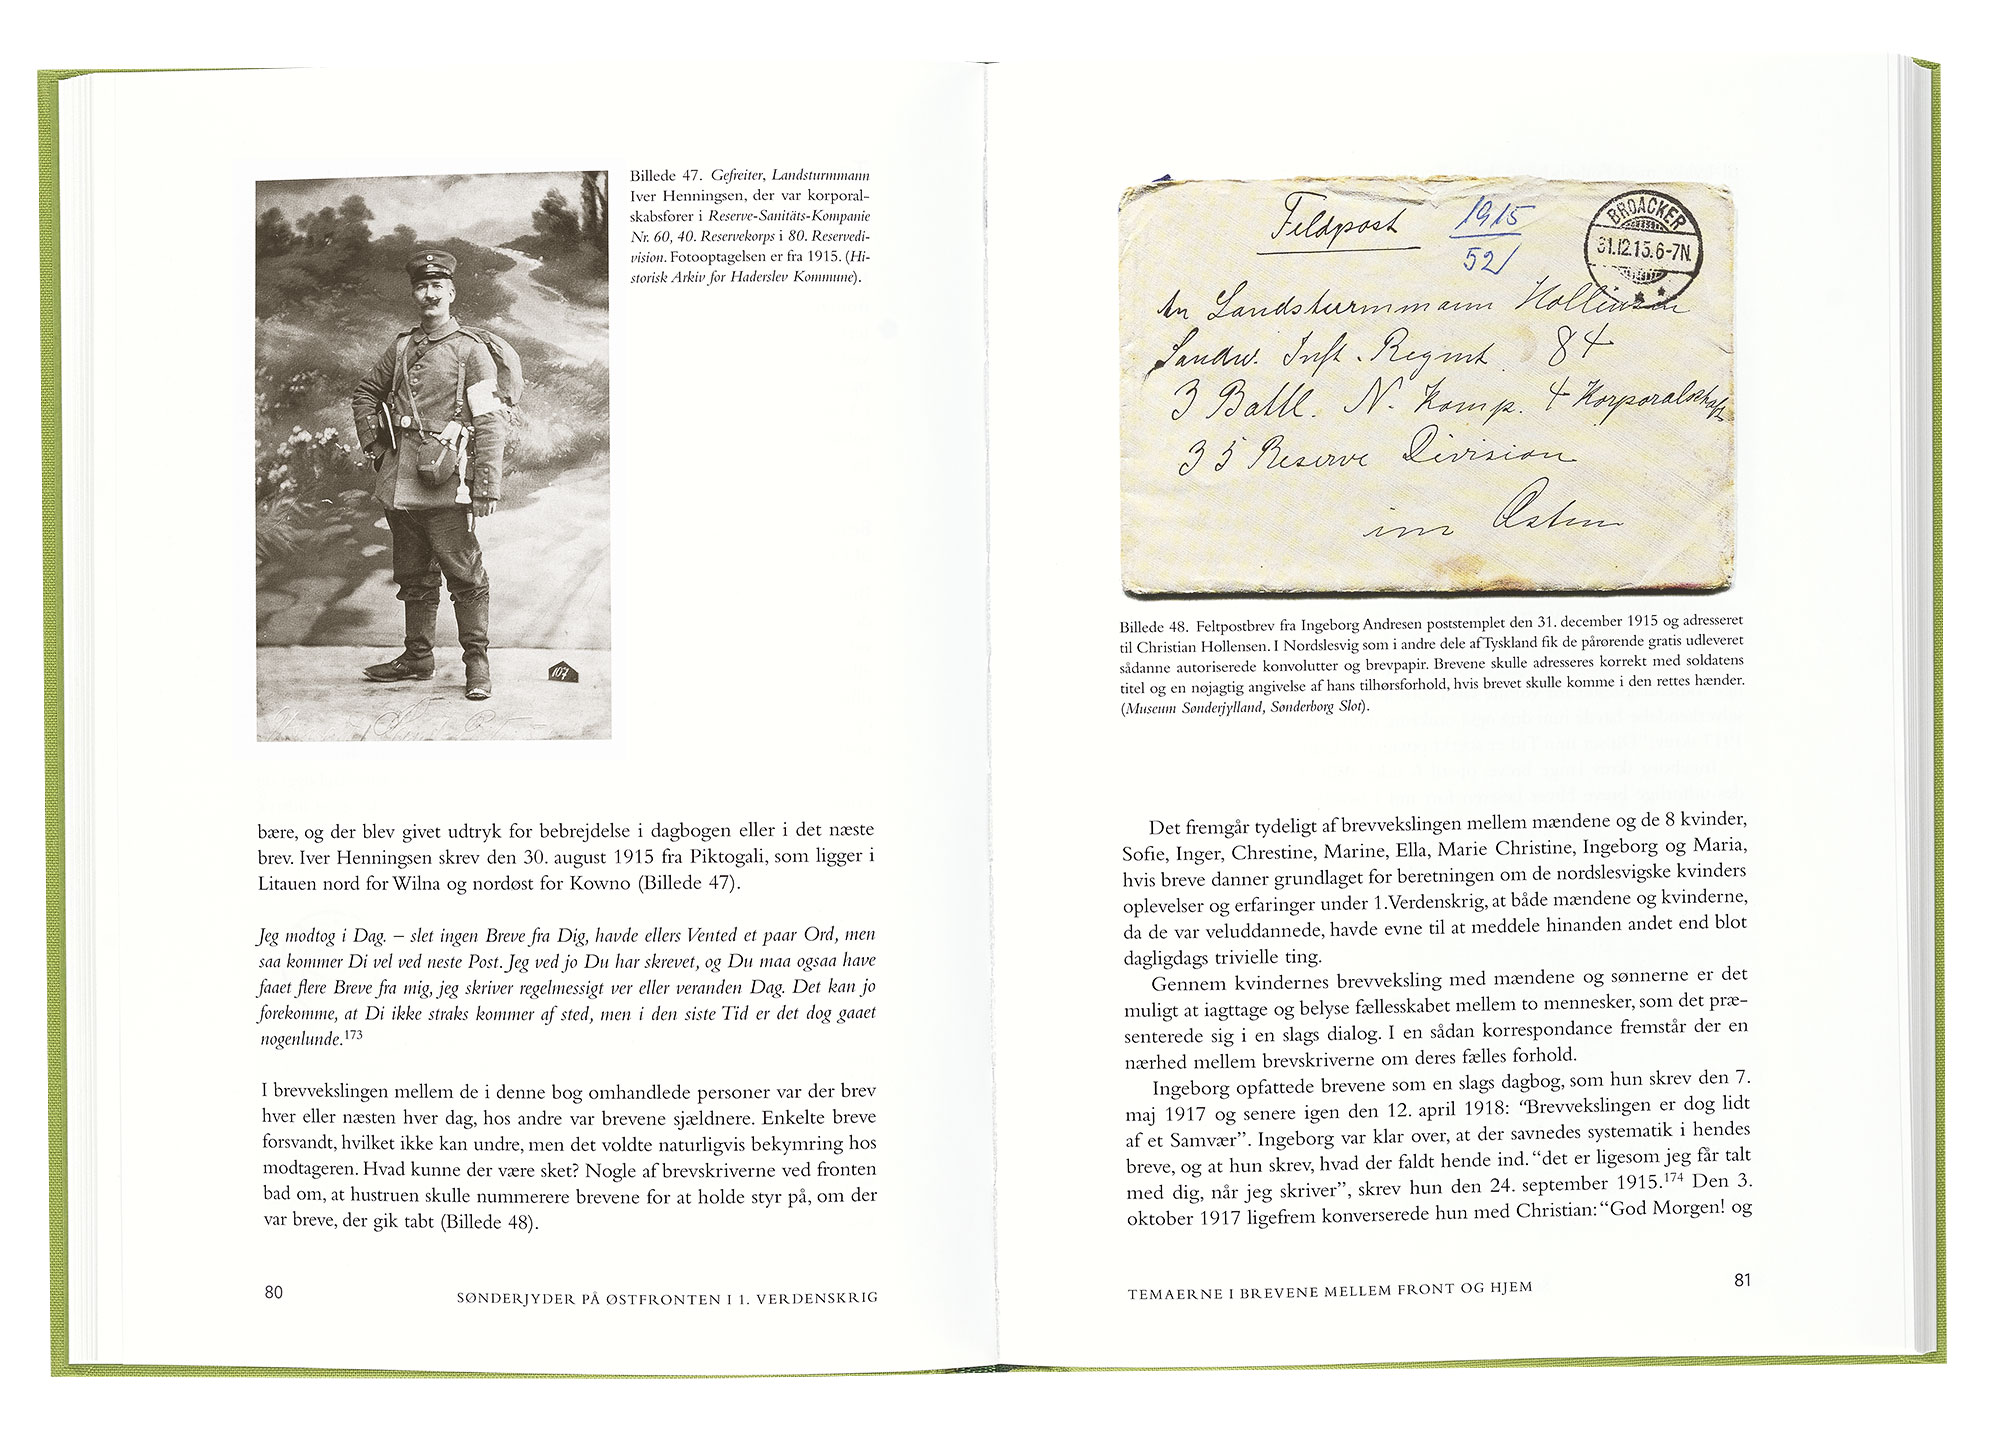 Billede 47. Gefreiter, Landsturmmann
Iver Henningsen, der var korporal-
skabsfører i Reserve-Sanitäts-Kompanie
Nr. 60, 40. Reservekorps i 80. Reservedi-
vision. Fotooptagelsen er fra 1915. (Hi-
storisk Arkiv for Haderslev Kommune).
107
bære, og der blev givet udtryk for bebrejdelse i dagbogen eller i det næste
brev. Iver Henningsen skrev den 30. august 1915 fra Piktogali, som ligger i
Litauen nord for Wilna og nordøst for Kowno (Billede 47).
Jeg modtog i Dag. – slet ingen Breve fra Dig, havde ellers Vented et paar Ord, men
saa kommer Di vel ved neste Post. Jeg ved jo Du har skrevet, og Du maa ogsaa have
faaet flere Breve fra mig, jeg skriver regelmessigt ver eller veranden Dag. Det kan jo
forekomme, at Di ikke straks kommer af sted, men i den siste Tid er det dog gaaet
nogenlunde.173
I brevvekslingen mellem de i denne bog omhandlede personer var der brev
hver eller næsten hver dag, hos andre var brevene sjældnere. Enkelte breve
forsvandt, hvilket ikke kan undre, men det voldte naturligvis bekymring hos
modtageren. Hvad kunne der være sket? Nogle af brevskriverne ved fronten
bad om, at hustruen skulle nummerere brevene for at holde styr på, om der
var breve, der gik tabt (Billede 48).
80
SØNDERJYDER PÅ ØSTFRONTEN I 1. VERDENSKRIG
Feldpost
1915
52
BROACKER
31.12.15.6-7N.
An Landsturmmann Hollensen
Landw. Inft. Regmt. 84
3 Batll. N. Komp. 4 Korporalschaft
35 Reserve Division
im Østen
Billede 48. Feltpostbrev fra Ingeborg Andresen poststemplet den 31. december 1915 og adresseret
til Christian Hollensen. I Nordslesvig som i andre dele af Tyskland fik de pårørende gratis udleveret
sådanne autoriserede konvolutter og brevpapir. Brevene skulle adresseres korrekt med soldatens
titel og en nøjagtig angivelse af hans tilhørsforhold, hvis brevet skulle komme i den rettes hænder.
(Museum Sønderjylland, Sønderborg Slot).
Det fremgår tydeligt af brevvekslingen mellem mændene og de 8 kvinder,
Sofie, Inger, Chrestine, Marine, Ella, Marie Christine, Ingeborg og Maria,
hvis breve danner grundlaget for beretningen om de nordslesvigske kvinders
oplevelser og erfaringer under 1. Verdenskrig, at både mændene og kvinderne,
da de var veluddannede, havde evne til at meddele hinanden andet end blot
dagligdags trivielle ting.
Gennem kvindernes brevveksling med mændene og sønnerne er det
muligt at iagttage og belyse fællesskabet mellem to mennesker, som det præ-
senterede sig i en slags dialog. I en sådan korrespondance fremstår der en
nærhed mellem brevskriverne om deres fælles forhold.
Ingeborg opfattede brevene som en slags dagbog, som hun skrev den 7.
maj 1917 og senere igen den 12. april 1918: “Brevvekslingen er dog lidt
af et Samvær”. Ingeborg var klar over, at der savnedes systematik i hendes
breve, og at hun skrev, hvad der faldt hende ind. “det er ligesom jeg får talt
med dig, når jeg skriver”, skrev hun den 24. september 1915.174 Den 3.
oktober 1917 ligefrem konverserede hun med Christian: “God Morgen! og
TEMAERNE I BREVENE MELLEM FRONT OG HJEM
81